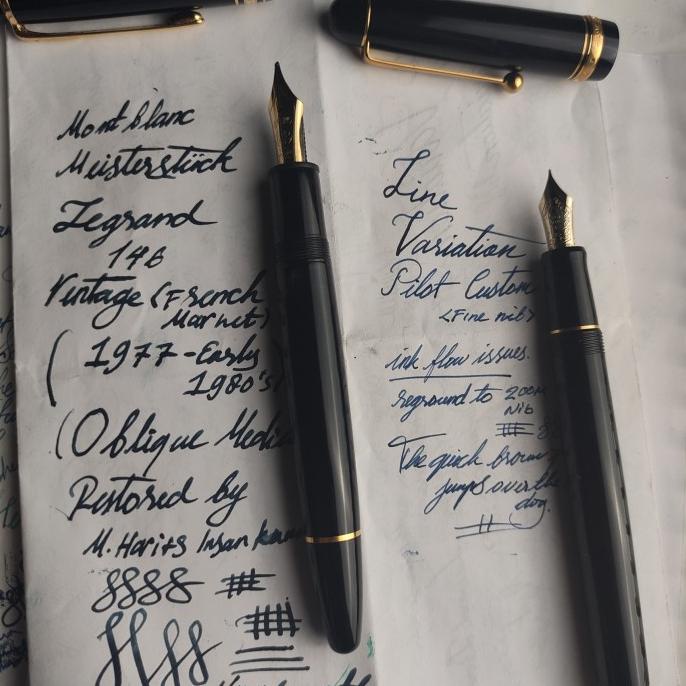 Mont blanc
Meisterstück
Legrand
146
Vintage (French
Market)
(1977 - Early
1980's)
(Oblique Medi
Restored by
M. Harits Insan
Line
Variation
Pilot Custom
<Fine nib>
ink flow issues.
reground to
Nib
The quick brown
jumps over the
dog.